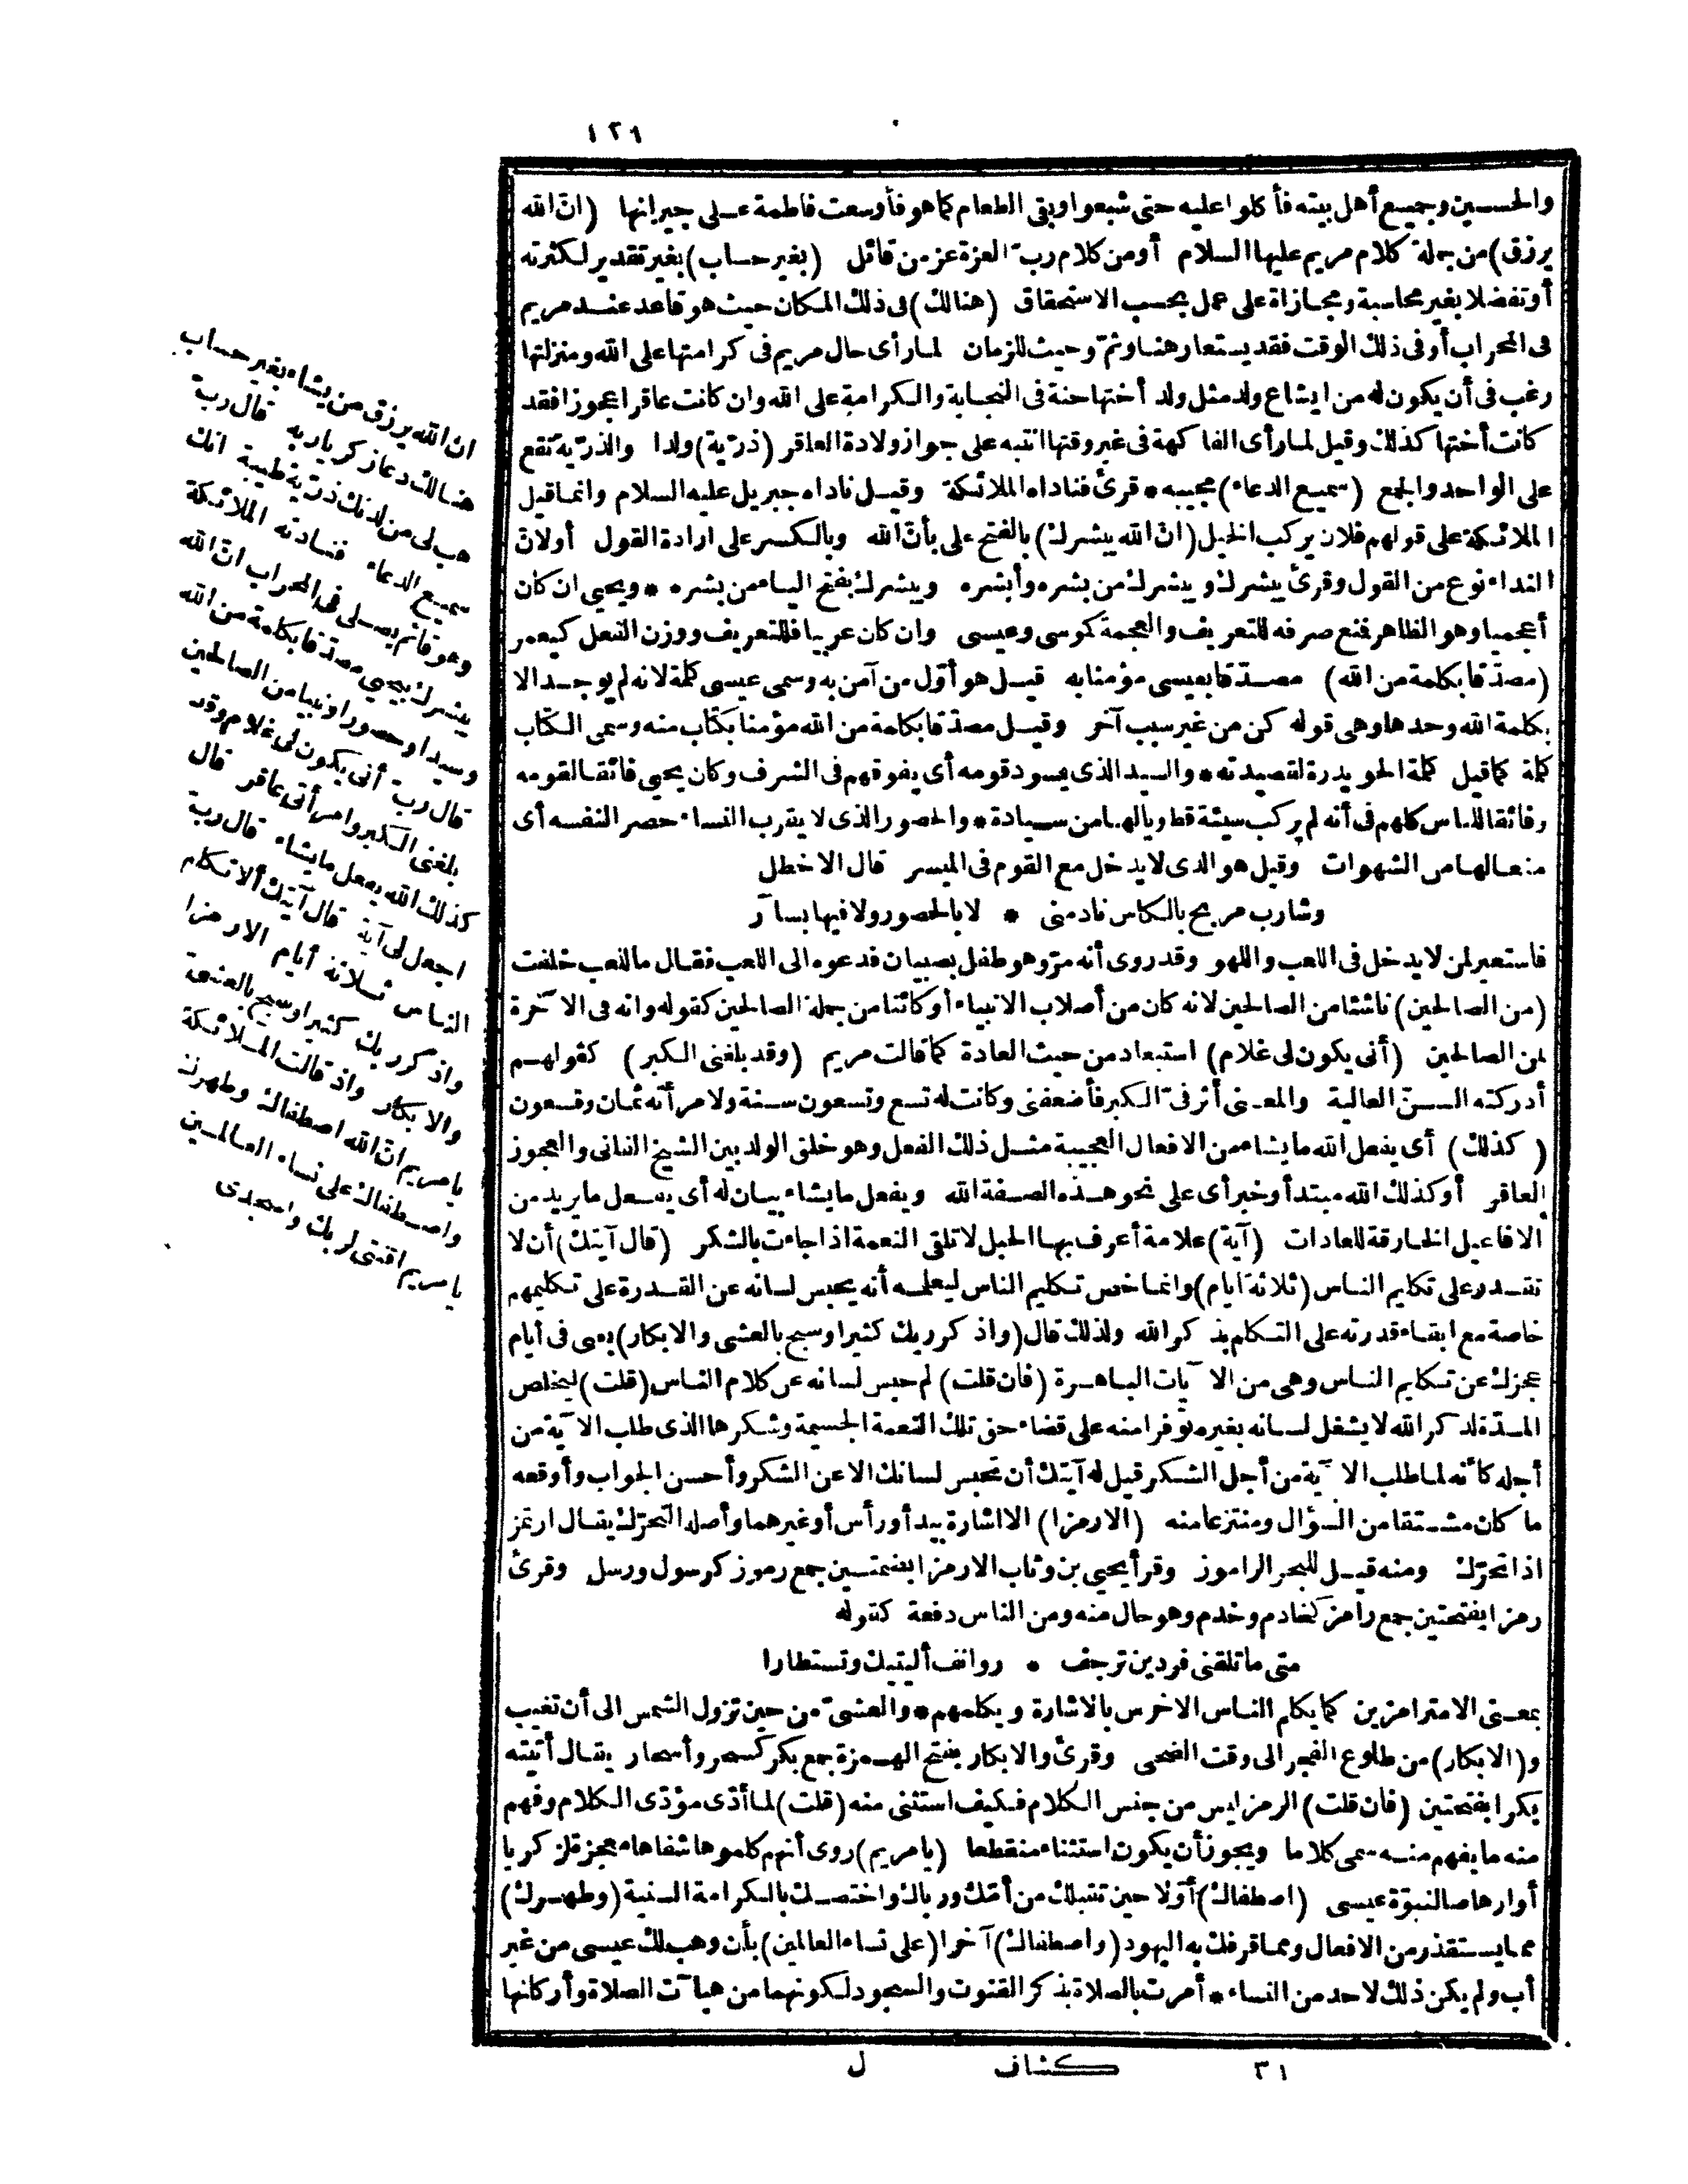 ١٢١
والحسين وجميع أهل بيته فأكلوا عليه حتى شبعوا وبقى الطعام كما هو فأوسعت فاطمة على جيرانها (انّ الله
يرزق) من جملة كلام مريم عليها السلام أو من كلام ربّ العزة عز من قائل (بغير حساب) بغير تقدير لكثرته
أو تفضلا بغير محاسبة ومجازاة على عمل بحسب الاستحقاق (هنالك) فى ذلك المكان حيث هو قاعد عند مريم
فى المحراب أو فى ذلك الوقت فقد يستعار هنا وثمّ وحيث للزمان لما رأى حال مريم فى كرامتها على الله ومنزلتها
رغب فى أن يكون له من ايشاع ولد مثل ولد أختها حنة فى النجابة والكرامة على الله وان كانت عاقرا عجوزا فقد
كانت أختها كذلك وقيل لما رأى الفاكهة فى غير وقتها انتبه على جواز ولادة العاقر (ذرّية) ولدا والذرّية تقع
على الواحد والجمع (سميع الدعاء) مجيبه * قرئ فناداه الملائكة وقيل ناداه جبريل عليه السلام وانما قيل
الملائكة على قولهم فلان يركب الخيل (انّ الله يبشرك) بالفتح على بأنّ الله وبالكسر على ارادة القول أو لانّ
النداء نوع من القول وقرئ يبشرك ويبشرك من بشره وأبشره ويبشرك بفتح الياء من بشره * ويحيى ان كان
أعجميا وهو الظاهر فمنع صرفه للتعريف والعجمة كموسى وعيسى وان كان عربيا فللتعريف ووزن الفعل كيعمر
(مصدّقا بكلمة من الله) مصدّقا بعيسى مؤمنا به قيل هو أوّل من آمن به وسمى عيسى كلمة لانه لم يوجد الا
بكلمة الله وحدها وهى قوله كن من غير سبب آخر وقيل مصدّقا بكلمة من الله مؤمنا بكتاب منه وسمى الكتاب
كلمة كما قيل كلمة الحويدرة لقصيدته * والسيد الذى يسود قومه أى يفوقهم فى الشرف وكان يحيى فائقا لقومه
وفائقا للناس كلهم فى أنه لم يركب سيئة قط ويالها من سيادة * والحصور الذى لا يقرب النساء حصرا لنفسه أى
منعا لها من الشهوات وقيل هو الذى لا يدخل مع القوم فى الميسر قال الاخطل
وشارب مربح بالكاس نادمنى * لا بالحصور ولا فيها بسآر
فاستعير لمن لا يدخل فى اللعب واللهو وقد روى أنه مرّ وهو طفل بصبيان فدعوه الى اللعب فقال ما للعب خلقت
(من الصالحين) ناشئا من الصالحين لانه كان من أصلاب الانبياء أو كائنا من جملة الصالحين كقوله وانه فى الآخرة
لمن الصالحين (أنى يكون لى غلام) استبعاد من حيث العادة كما قالت مريم (وقد بلغنى الكبر) كقولهم
أدركته السنّ العالية والمعنى أثر فىّ الكبر فأضعفنى وكانت له تسع وتسعون سنة ولامرأته ثمان وتسعون
(كذلك) أى يفعل الله ما يشاء من الافعال العجيبة مثل ذلك الفعل وهو خلق الولد بين الشيخ الفانى والعجوز
العاقر أو كذلك الله مبتدأ وخبر أى على نحو هذه الصفة الله ويفعل ما يشاء بيان له أى يفعل ما يريد من
الافاعيل الخارقة للعادات (آية) علامة أعرف بها الحبل لاتلقى النعمة اذا جاءت بالشكر (قال آيتك) أن لا
تقدر على تكليم الناس (ثلاثة أيام) وانما خص تكليم الناس ليعلمه أنه يحبس لسانه عن القدرة على تكليمهم
خاصة مع ابقاء قدرته على التكلم بذكر الله ولذلك قال (واذكر ربك كثيرا وسبح بالعشى والابكار) يعنى فى أيام
عجزك عن تكليم الناس وهى من الآيات الباهرة (فان قلت) لم حبس لسانه عن كلام الناس (قلت) ليخلص
المدّة لذكر الله لا يشغل لسانه بغيره توفرا منه على قضاء حق تلك النعمة الجسيمة وشكرها الذى طلب الآية من
أجله كأنه لما طلب الآية من أجل الشكر قيل له آيتك أن تحبس لسانك الا عن الشكر وأحسن الجواب وأوقعه
ما كان مشتقا من السؤال ومنتزعا منه (الا رمزا) الا اشارة بيد أو رأس أو غيرهما وأصله التحرّك يقال ارتمز
اذا تحرّك ومنه قيل للبحر الراموز وقرأ يحيى بن وثاب الا رمزا بضمتين جمع رموز كرسول ورسل وقرئ
رمزا بفتحتين جمع رامز كخادم وخدم وهو حال منه ومن الناس دفعة كقوله
متى ما تلقنى فردين ترجف * روانف أليتيك وتستطارا
بمعنى الا مترامزين كما يكلم الناس الاخرس بالاشارة ويكلمهم * والعشىّ من حين تزول الشمس الى أن تغيب
و(الابكار) من طلوع الفجر الى وقت الضحى وقرئ والابكار بفتح الهمزة جمع بكر كسحر وأسحار يقال أتيته
بكرا بفتحتين (فان قلت) الرمز ليس من جنس الكلام فكيف استثنى منه (قلت) لما أدّى مؤدّى الكلام وفهم
منه ما يفهم منه سمى كلاما ويجوز أن يكون استثناء منقطعا (يا مريم) روى أنهم كلموها شفاها معجزة لزكريا
أو ارهاصا لنبوّة عيسى (اصطفاك) أوّلا حين تقبلك من أمّك ورباك واختصك بالكرامة السنية (وطهرك)
مما يستقذر من الافعال ومما قرفك به اليهود (واصطفاك) آخرا (على نساء العالمين) بأن وهب لك عيسى من غير
أب ولم يكن ذلك لاحد من النساء * أمرت بالصلاة بذكر القنوت والسجود لكونهما من هيآت الصلاة وأركانها
ان الله يرزق من يشاء بغير حساب
هنالك دعا زكريا ربه قال ربّ
هب لى من لدنك ذرّية طيبة انك
سميع الدعاء فنادته الملائكة
وهو قائم يصلى فى المحراب انّ الله
يبشرك بيحيى مصدّقا بكلمة من الله
وسيدا وحصورا ونبيا من الصالحين
قال ربّ أنى يكون لى غلام وقد
بلغنى الكبر وامرأتى عاقر قال
كذلك الله يفعل ما يشاء قال ربّ
اجعل لى آية قال آيتك ألا تكلم
الناس ثلاثة أيام الا رمزا
واذكر ربك كثيرا وسبح بالعشىّ
والابكار واذ قالت الملائكة
يا مريم انّ الله اصطفاك وطهرك
واصطفاك على نساء العالمين
يا مريم اقنتى لربك واسجدى
٣١ كشاف ل